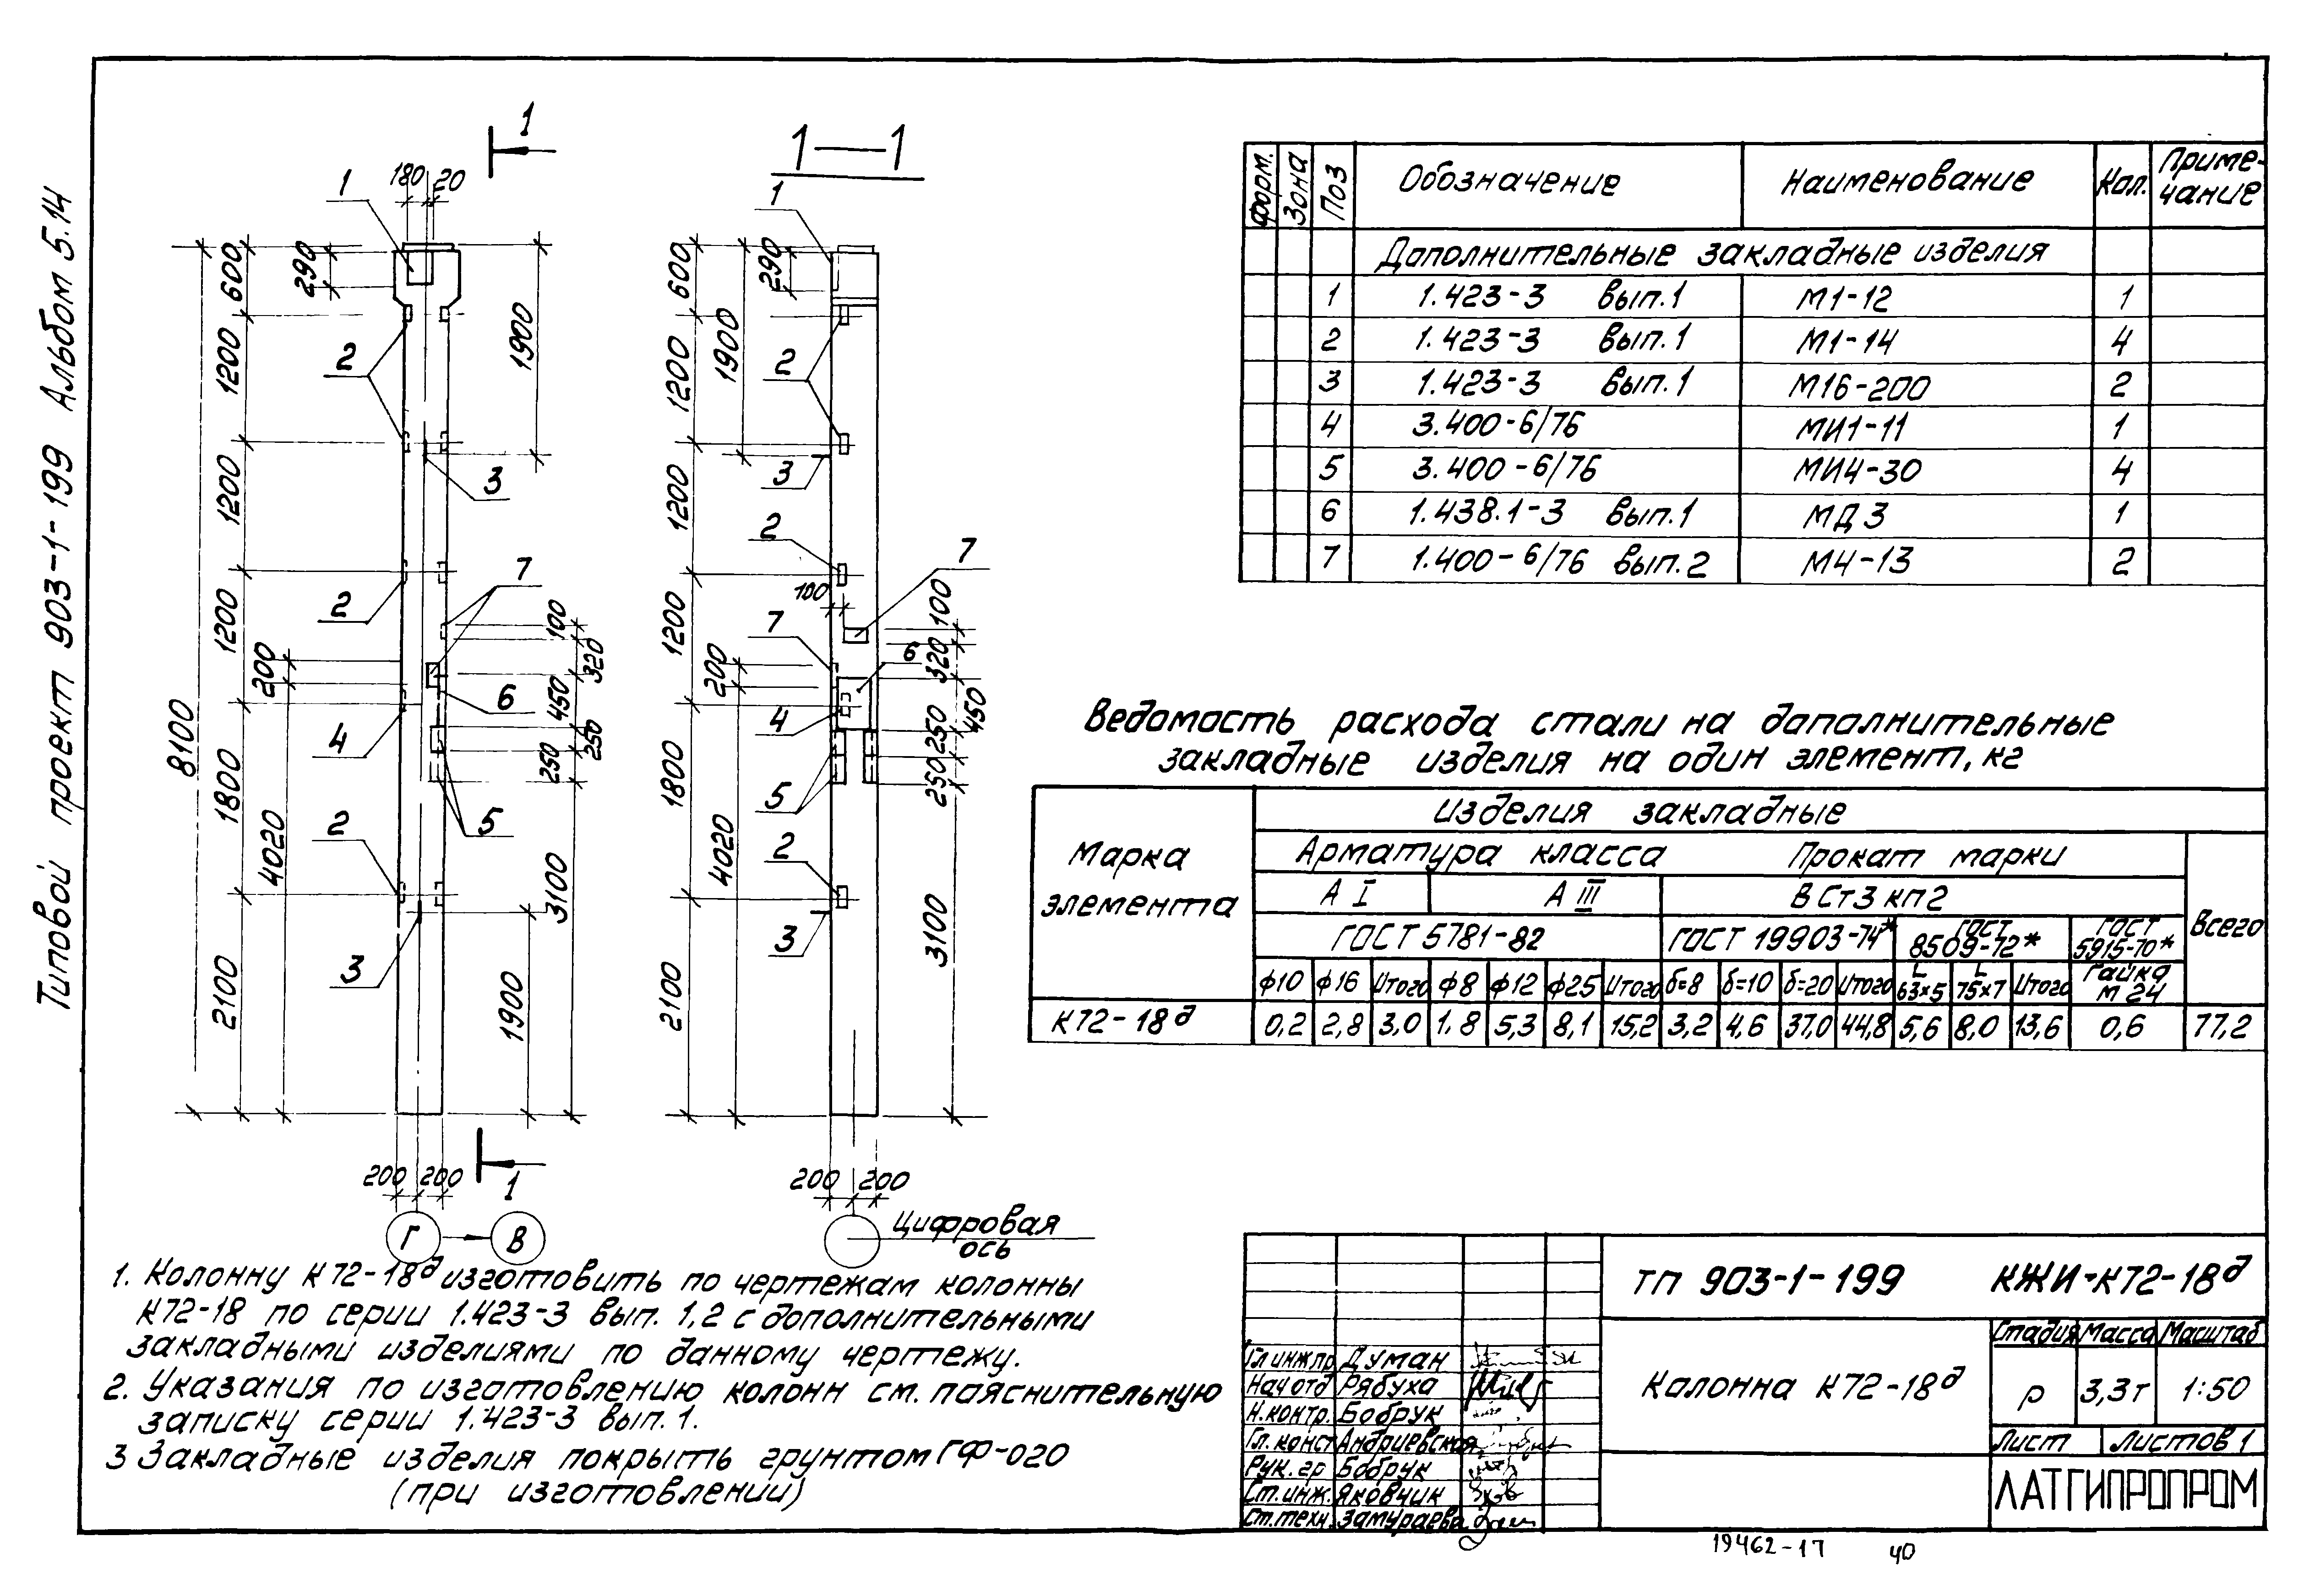 Типовой проект 903-1-199 Альбом 5.14
1
1—1
1
180
20
290
600
1200
1200
1200
1800
2100
8100
200
4020
1900
2
3
2
7
100
320
450
250
250
6
4
5
2
3
3100
1900
200 200
1
Г
В
1
290
600
1900
1200
1200
1200
1800
2100
2
3
2
100
7
100
7
6
320
450
200
4
250
250
5
4020
2
3
3100
200 200
Цифровая
ось
1. Колонну К72-18д изготовить по чертежам колонны
К72-18 по серии 1.423-3 вып. 1,2 с дополнительными
закладными изделиями по данному чертежу.
2. Указания по изготовлению колонн см. пояснительную
записку серии 1.423-3 вып. 1.
3 Закладные изделия покрыть грунтом ГФ-020
(при изготовлении)
Форм. Зона Поз Обозначение Наименование Кол. Приме-
чание
Дополнительные закладные изделия
1 1.423-3 вып.1 М1-12 1
2 1.423-3 вып.1 М1-14 4
3 1.423-3 вып.1 М16-200 2
4 3.400-6/76 МИ1-11 1
5 3.400-6/76 МИ4-30 4
6 1.438.1-3 вып.1 МД3 1
7 1.400-6/76 вып.2 М4-13 2
Ведомость расхода стали на дополнительные
закладные изделия на один элемент, кг
Марка элемента
Изделия закладные
Арматура класса Прокат марки
Всего
А I А III ВСт3кп2
ГОСТ 5781-82 ГОСТ 19903-74* ГОСТ 8509-72* ГОСТ 5915-70*
ф10 ф16 Итого ф8 ф12 ф25 Итого δ=8 δ=10 δ=20 Итого L 63×5 L 75×7 Итого Гайка М24
К72-18д 0,2 2,8 3,0 1,8 5,3 8,1 15,2 3,2 4,6 37,0 44,8 5,6 8,0 13,6 0,6 77,2
ТП 903-1-199 КЖИ-К72-18д
Колонна К72-18д
Стадия Масса Масштаб
р 3,3т 1:50
Лист Листов 1
ЛАТГИПРОПРОМ
Гл инж пр Думан
Нач отд Рябуха
Н.контр. Бобрук
Гл. конст Андриевская
Рук. гр Бобрук
Ст. инж. Яковчик
Ст.техн. Замураева
19462-17 40